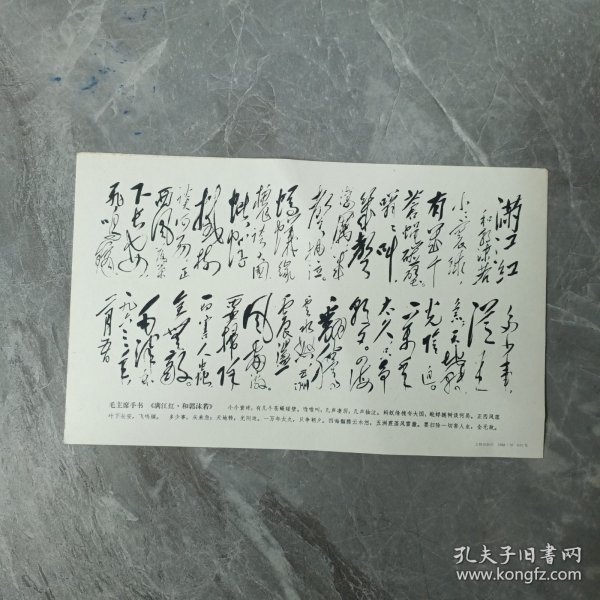 滿江紅
和郭沫若
小小寰球,
有几个
苍蝇碰壁。
嗡嗡叫,
几声
凄厉,几
声抽泣。
蚂蚁缘
槐夸大国,
蚍蜉
撼树
谈何易。正
西风落叶
下长安,
飞鸣镝。
多少事,
从来
急。天地转,
光阴迫。
一万年
太久,只争
朝夕。四海
翻腾
云水怒,五洲
震荡
风雷激。
要扫除
一切害人虫,
全无敌。
毛泽东
一九六三
毛主席手书 《满江红·和郭沫若》 小小寰球,有几个苍蝇碰壁。嗡嗡叫,几声凄厉,几声抽泣。蚂蚁缘槐夸大国,蚍蜉撼树谈何易。正西风落
叶下长安,飞鸣镝。 多少事,从来急;天地转,光阴迫。一万年太久,只争朝夕。四海翻腾云水怒,五洲震荡风雷激。要扫除一切害人虫,全无敌。
孔夫子旧书网
www.kongfz.com